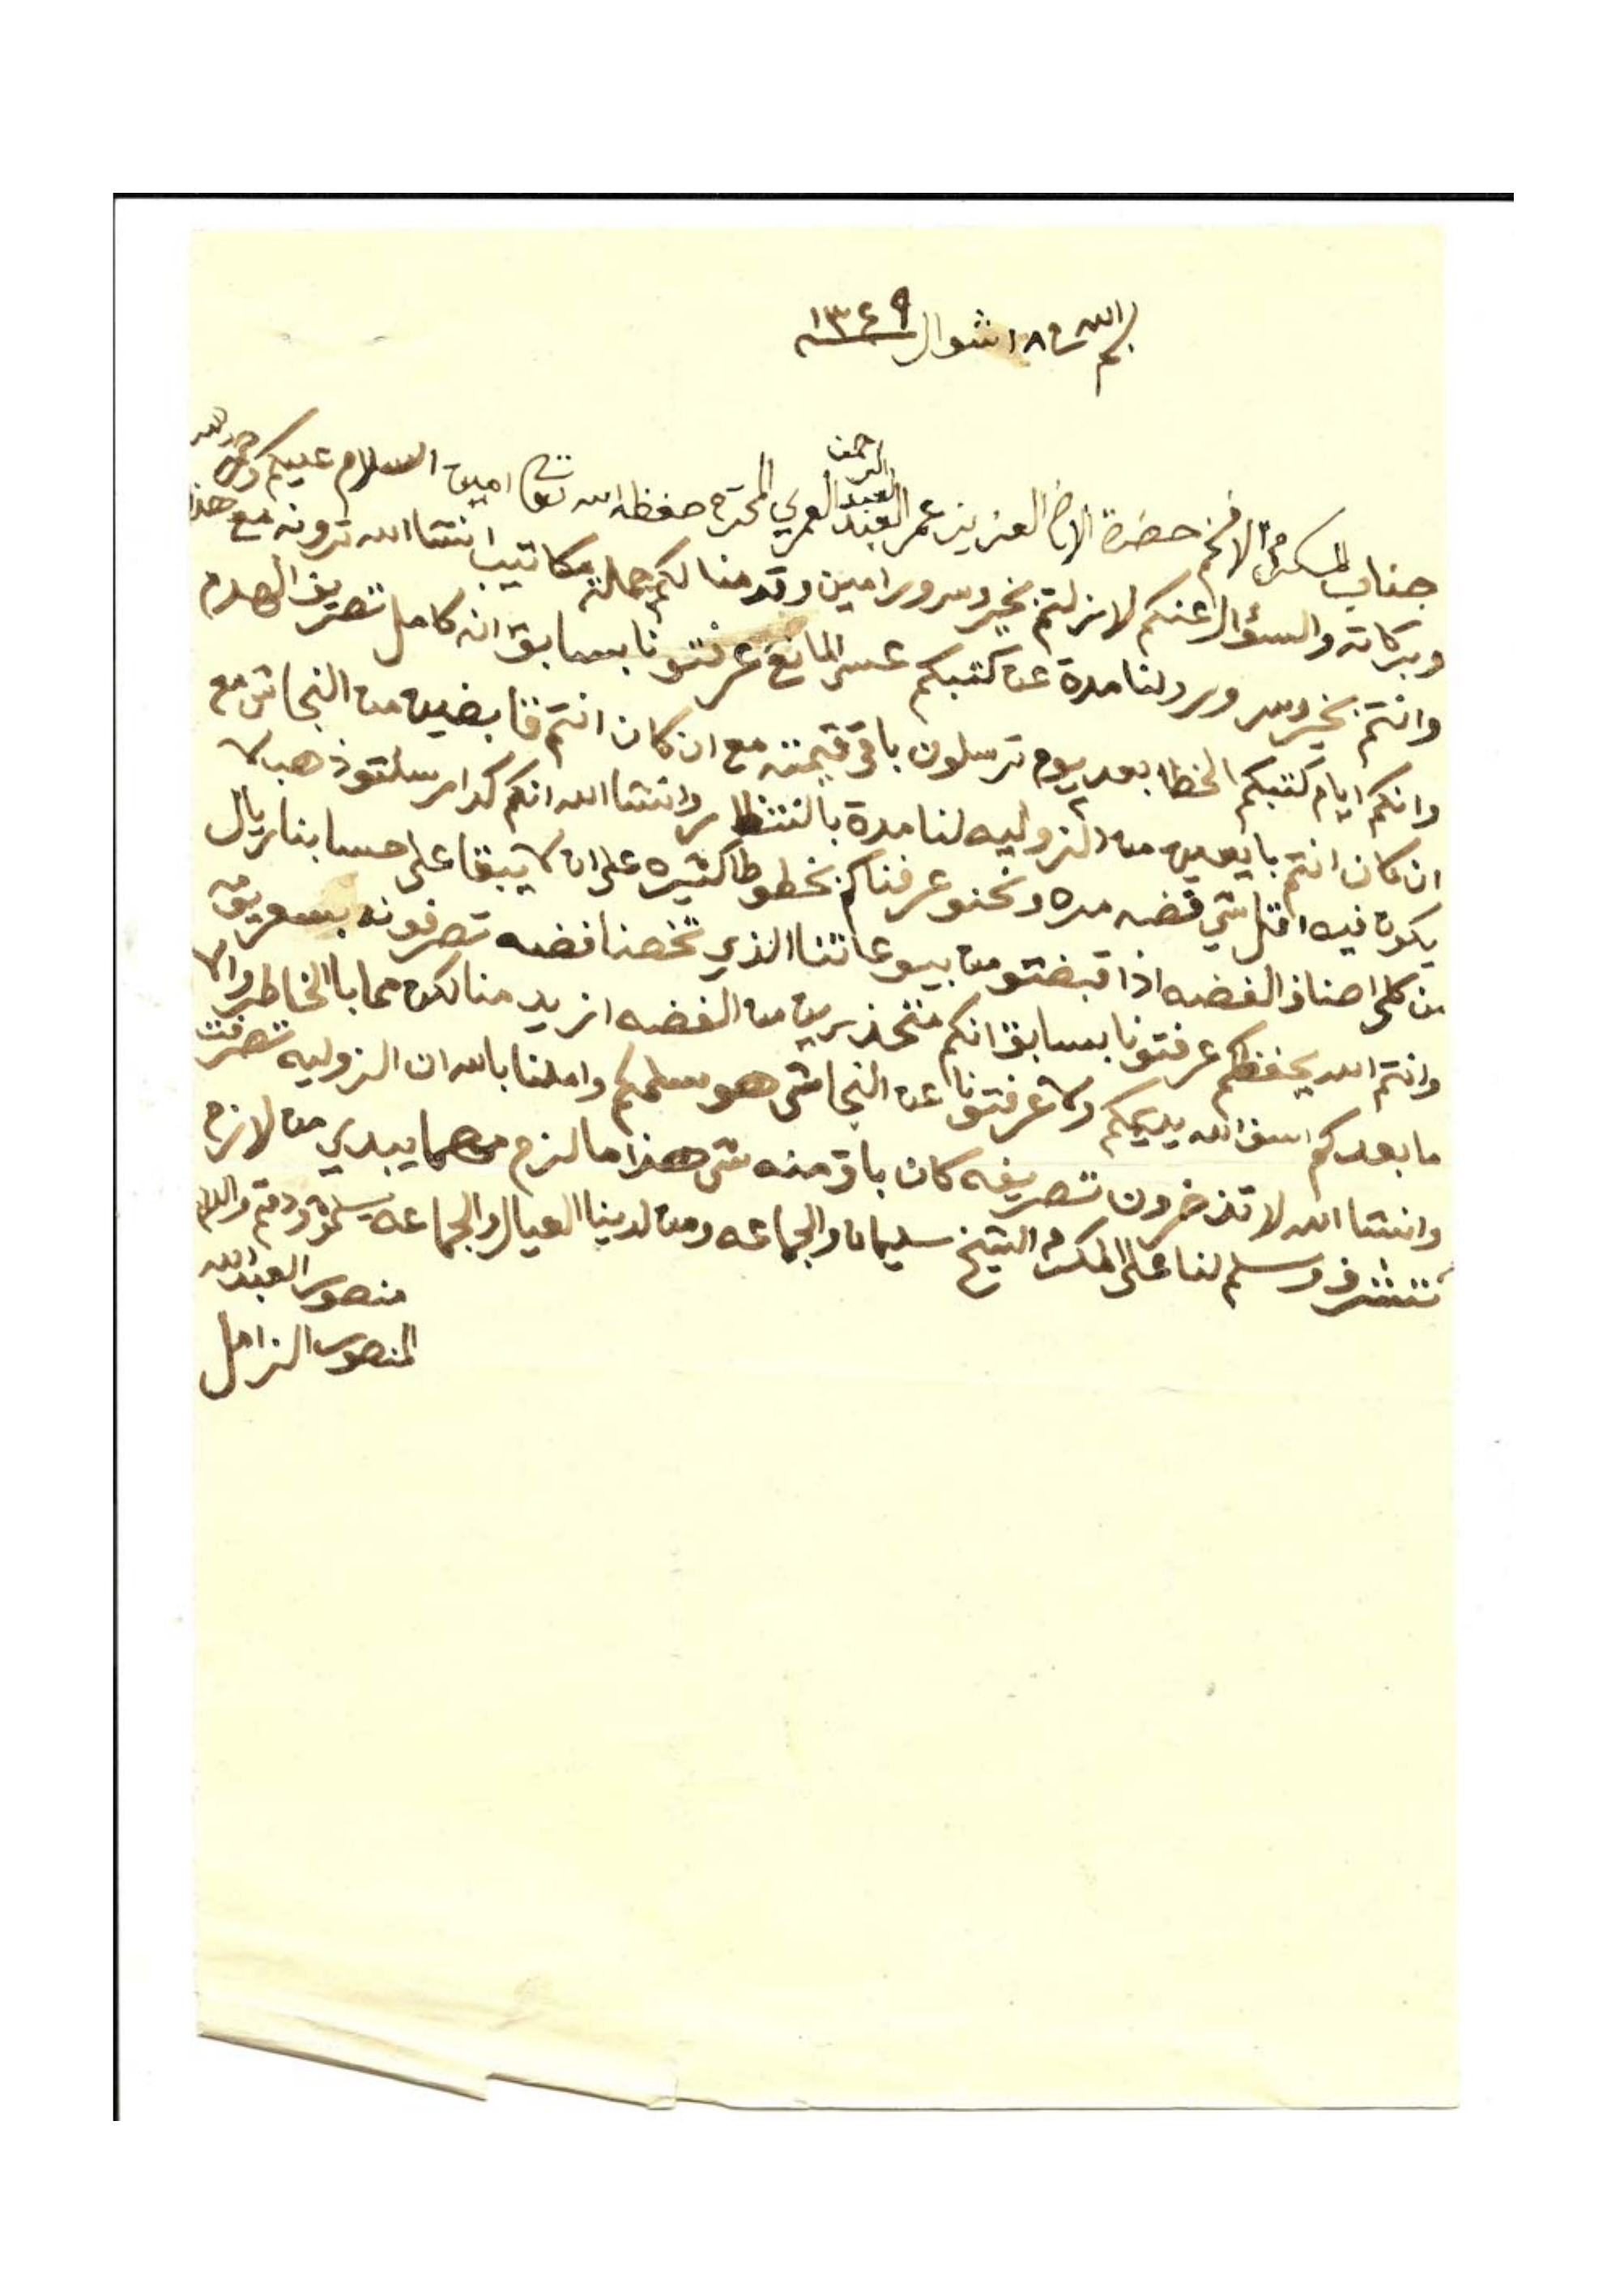 بسم الله ١٨ شوال ١٣٤٩
جناب المكرم الافخم حضرة الاخ العزيز عمر العبد الرحمن العمري المحترم حفظه الله تعالى امين السلام عليكم ورحمة الله
وبركاته والسؤال عنكم لازلتم بخير وسرور امين وقدمنا لكم جملة مكاتيب انشا الله ترونه مع هذا
وانتم بخير وسرور ولنا مدة عن كتبكم عسى المانع عرفتونا بسابق انه كامل تصريف الهدم
وانكم ايام كتبكم الخط بعد يوم ترسلون باقي قيمته مع ان كان انتم قابضين من النجاشي مع
ان كان انتم بايعين من الزوليه لنا مدة بالنتظار وانشا الله انكم كد ارسلتو ذهب لا
يكون فيه اقل شي فضه مره ونحنو عرفناكم بخطوط كثيره على ان لا يبقا على حسابنا ريال
من كل اصناف الفضه اذا قبضتو من بيوعاتنا الذي تخصنا فضه تصرفونه بسعر يومه
وانتم الله يحفظكم عرفتونا بسابق انكم متحذرين من الفضه ازيد منا لكن محابا الخاطر والا
ما بعدكم اسف الله يديمكم ولا عرفتونا عن النجاشي هو سلمكم واملنا بالله ان الزوليه تصرفت
وانشا الله لا تذخرون تصريفه كان باقي منه شي هذا ما لزم مهما يبدي من لازم
نتشرف وسلم لنا على المكرم الشيخ سليمان والجماعه ومن لدينا العيال والجماعه يسلمون ودمتم والسلام
منصور العبدالله
المنصور الزامل